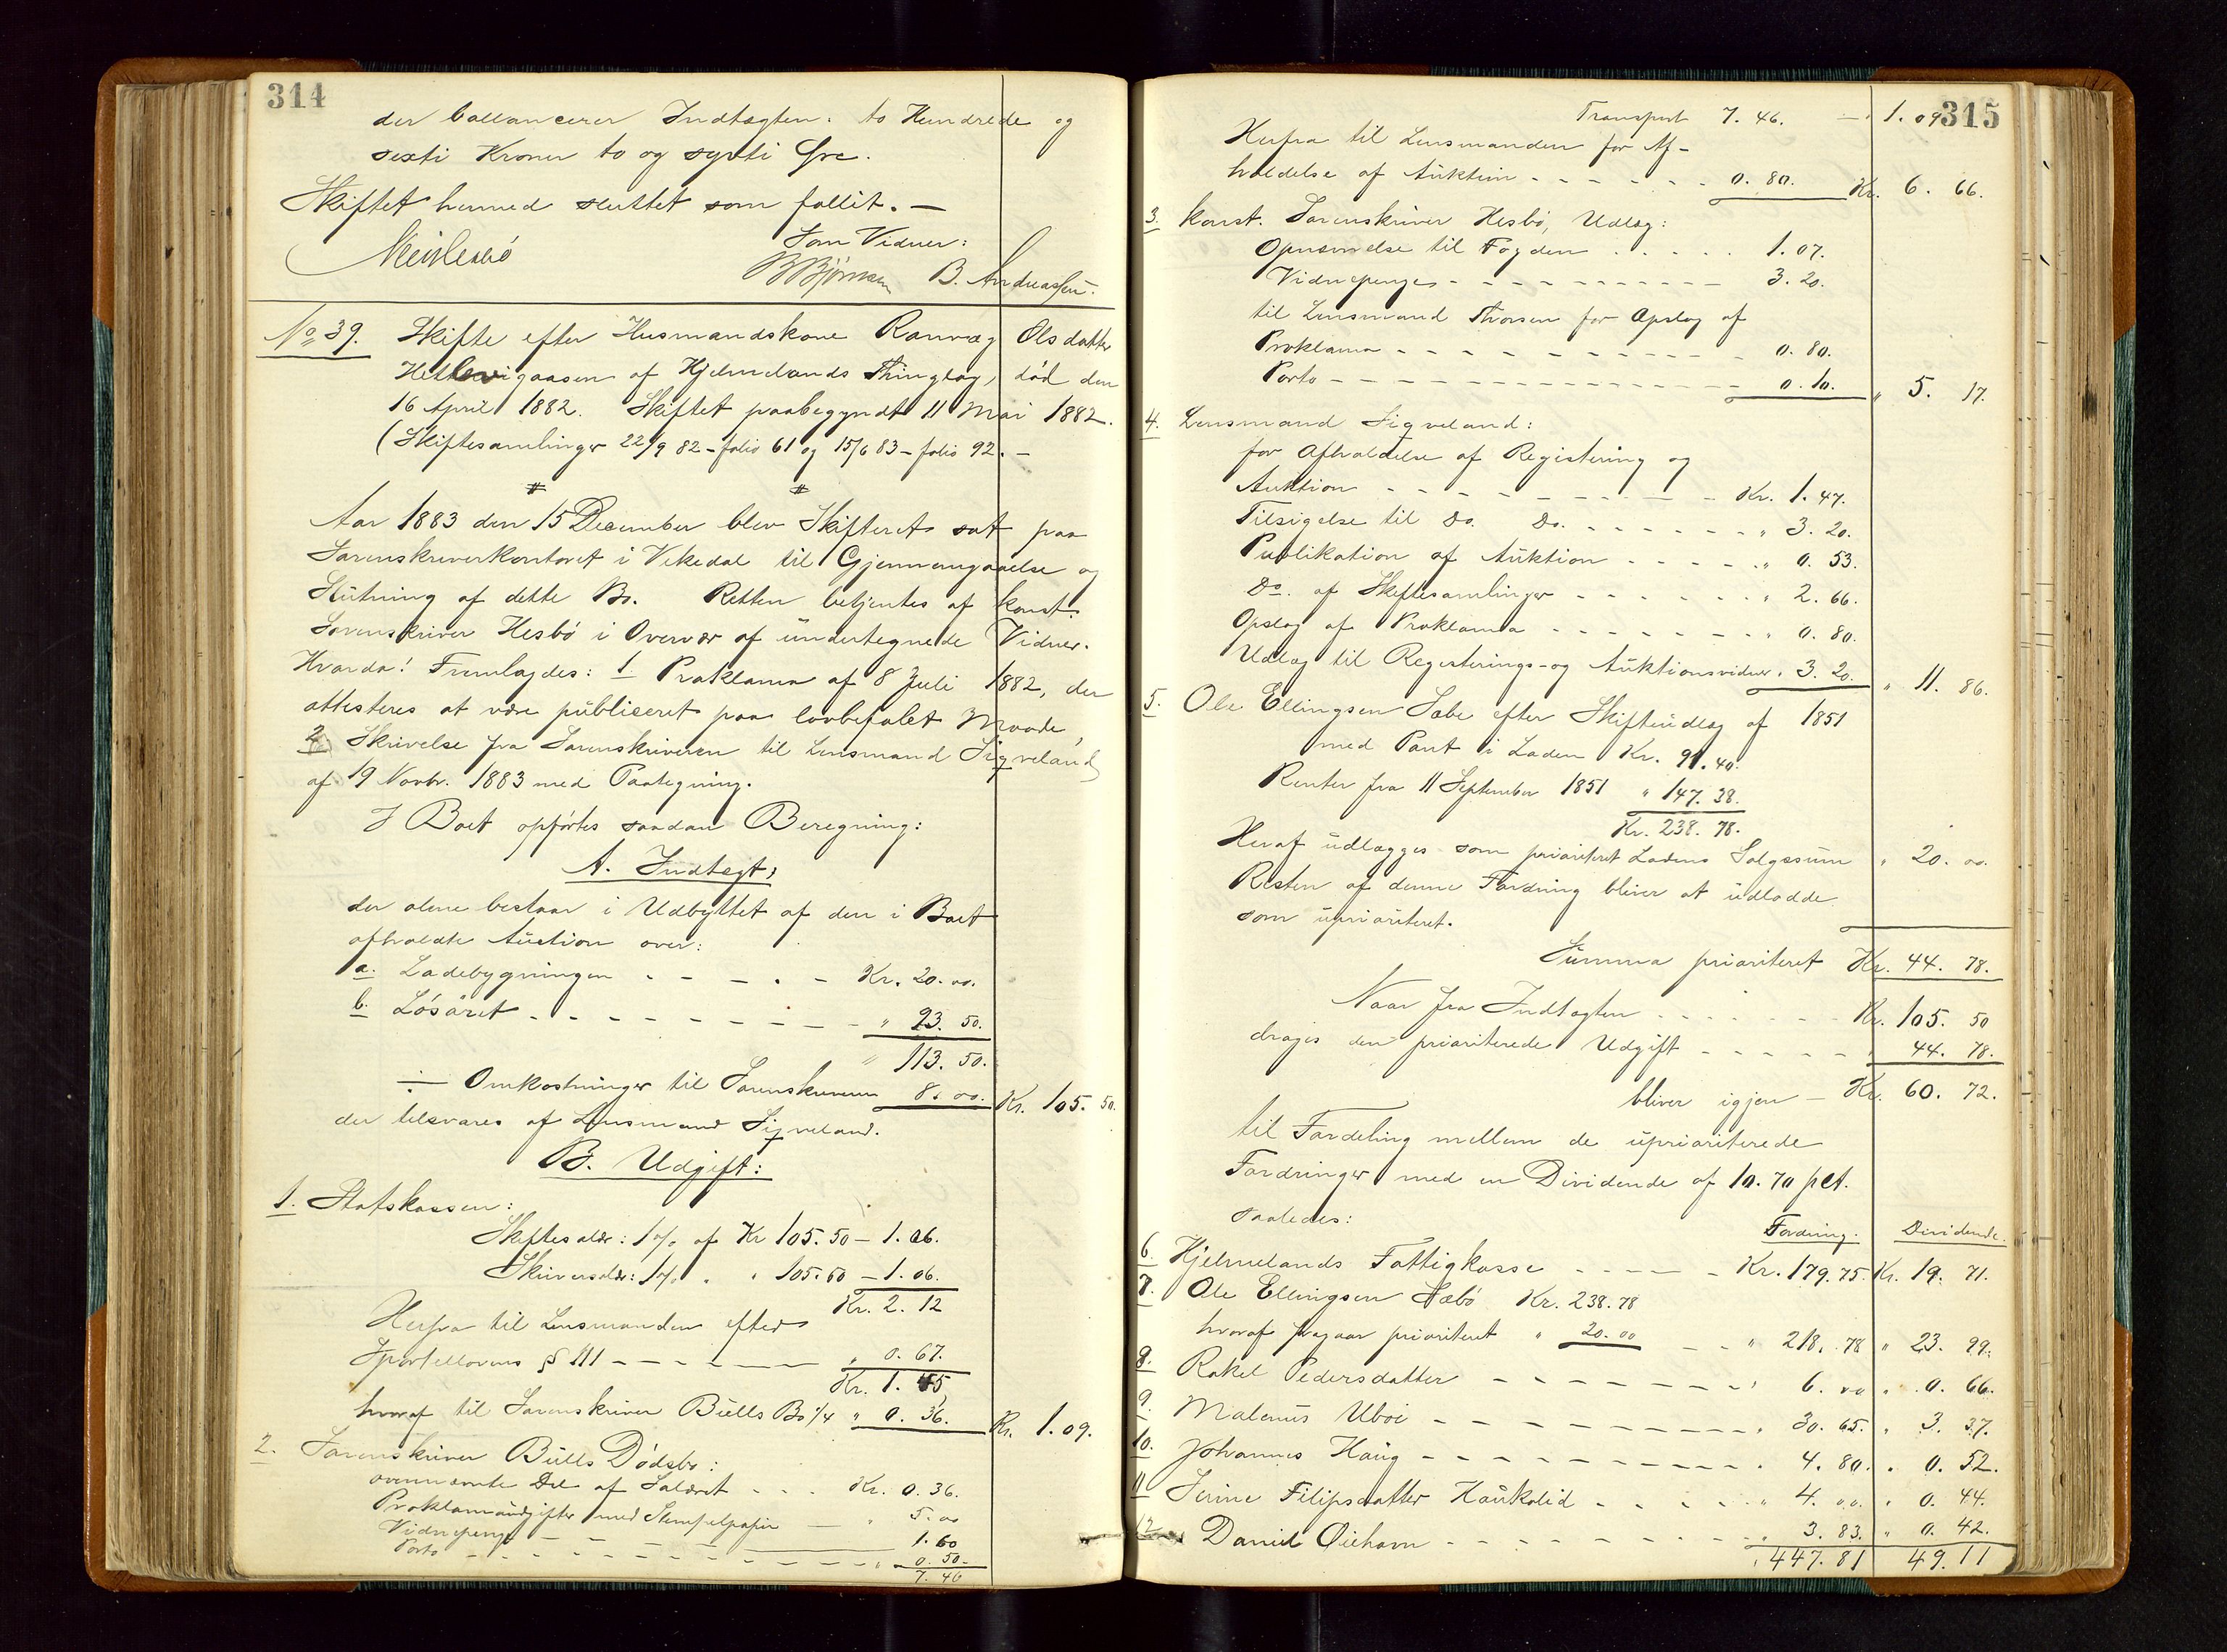 314
der ballancerer Indtægten: to Hundrede og
sexti Kroner to og sytti Øre.
Skiftet hermed sluttet som fallit. —
Som Vidner:
BBjørnsen B. Andreassen.
No 39. Skifte efter Husmandskone Ranvæg Olsdatter
af Hjelmelands Thinglag, død den
16 April 1882. Skiftet paabegyndt 11 Mai 1882.
(Skiftesamlinger 22/9 82 - folio 61 og 15/6 83 - folio 92. —
Aar 1883 den 15 December blev Skifteret sat paa
Sorenskriverkontoret i Vikedal til Gjennemgaaelse og
Slutning af dette Bo. Retten betjentes af konst.
Sorenskriver Hesbö i Overvær af undertegnede Vidner.
Hvorda! Fremlagdes: 1 Proklama af 8 Juli 1882, der
attesteres at være publiceret paa lovbefalet Maade,
2 Skrivelse fra Sorenskriveren til Lensmand Sigveland
af 19 Novbr. 1883 med Paategning.
I Boet opførtes saadan Beregning:
A. Indtægt,
der alene bestaar i Udbyttet af den i Boet
afholdte Auction over:
a. Ladebygningen - - - - - Kr. 20. 00.
b. Løsøret - - - - - - - - - " 93. 50.
" 113. 50.
÷ Omkostninger til Sorenskriveren 8. 00. Kr. 105. 50.
der tilsvares af Lensmand Sigveland.
B. Udgift:
1. Statskassen:
Skiftesalær: 1% af Kr 105. 50 — 1. 06.
Skriversalær: 1% " " 105. 50 — 1. 06.
Kr. 2. 12
Herfra til Lensmanden efter
Sportellovens § 111 - - - - - " 0. 67.
Kr. 1. 45
hvoraf til Sorenskriver Bulls Bo 1/4 " 0. 36. Kr. 1. 09.
2. Sorenskriver Bulls Dødsbo:
ovennævnte Del af Salæret - - - Kr. 0. 36.
Proklamaudgifter med Stempelpapir — " 5. 00
Vidnepenge - - - 1. 60
Porto - - - - - - - - - - - " 0. 50.
7. 46
315
Transport 7. 46. — 1. 09
Herfra til Lensmanden for Af-
holdelse af Auktion - - - - - - 0. 80. Kr. 6. 66.
3. konst. Sorenskriver Hesbö, Udlæg:
Opnævnelse til Fogden . . . . . 1. 07.
Vidnepenge - - - - - - - - - - - 3. 20.
til Lensmand Thorsen for Opslag af
Proklama - - - - - - - - - - - - 0. 80.
Porto - - - - - - - - - - - - - - 0. 10. " 5. 17.
4. Lensmand Sigveland:
for Afholdelse af Registering og
Auktion - - - - - - - - - - - Kr. 1. 47.
Tilsigelse til Do. Do. - - - - - - - " 3. 20.
Publikation af Auktion - - - - - " 0. 53.
Do. af Skiftesamlinger - - - - - - - " 2. 66.
Opslag af Proklama - - - - - - - - " 0. 80.
Udlæg til Registerings- og Auktionsvidner " 3. 20. " 11. 86.
5. Ole Ellingsen Sæbø efter Skifteudlæg af 1851
med Pant i Laden Kr. 91. 40.
Renter fra 11 September 1851 " 147. 38.
Kr. 238. 78.
Heraf udlægges som prioriteret Ladens Salgssum " 20. 00.
Resten af denne Fordring bliver at udlodde
som uprioriteret.
Summa prioriteret Kr. 44. 78.
Naar fra Indtægten - - - - - - - Kr. 105. 50
drages den prioriterede Udgift - - - - - " 44. 78.
bliver igjen — Kr. 60. 72.
til Fordeling mellem de uprioriterede
Fordringer med en Dividende af 10. 70 pCt.
saaledes:
Fordring. Dividende.
6. Hjelmelands Fattigkasse - - - - - Kr. 179. 75. Kr. 19. 71.
7. Ole Ellingsen Sæbö Kr. 238. 78
hvoraf fragaar prioriteret " 20. 00 - - " 218. 78 " 23. 99.
8. Rakel Pedersdatter - - - - - - - - " 6. 00 " 0. 66.
9. Malenus Uboi - - - - - - - - - - " 30. 65. " 3. 37.
10. Johannes Haug - - - - - - - - - - " 4. 80. " 0. 52.
11 Serine Filipsdatter Haukalid - - - - - " 4. 00. " 0. 44.
12. Daniel Øiehavn - - - - - - - - " 3. 83. " 0. 42.
" 447. 81 49. 11